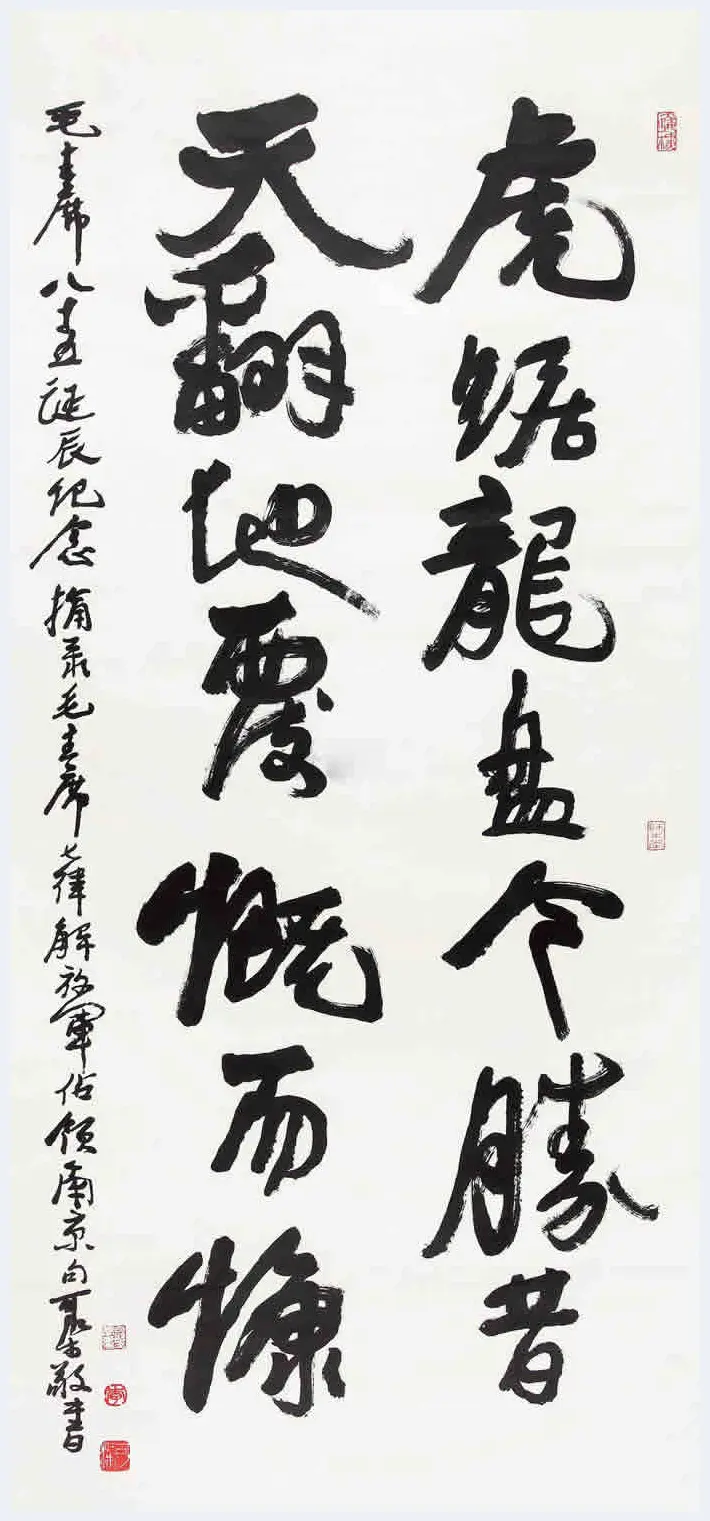 虎踞龍盘今勝昔
天翻地覆慨而慷
毛主席八十五诞辰纪念摘录毛主席七律解放軍佔领南京句可染敬書